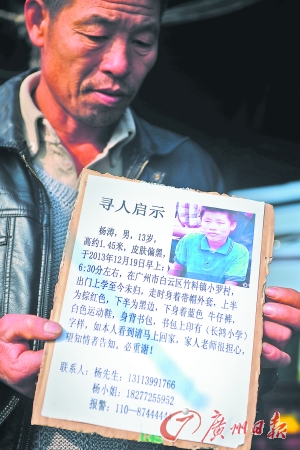 寻人启示
杨涛，男，13岁，
高约1.45米，皮肤偏黑，
于2013年12月19日早上
6:30分左右，在广州市白云区竹料镇小罗村，
出门上学至今未归，走时身着带帽外套，上半
为棕红色，下半为黑边，下身着蓝色 牛仔裤，
白色运动鞋，身背书包，书包上印有（长鸿小学）
字样，如本人看到请马上回家。家人老师很担心，
望知情者告知。必重谢！
联系人：杨先生：13113991766
杨小姐：18277255952
报警：110—8744444
广州日报